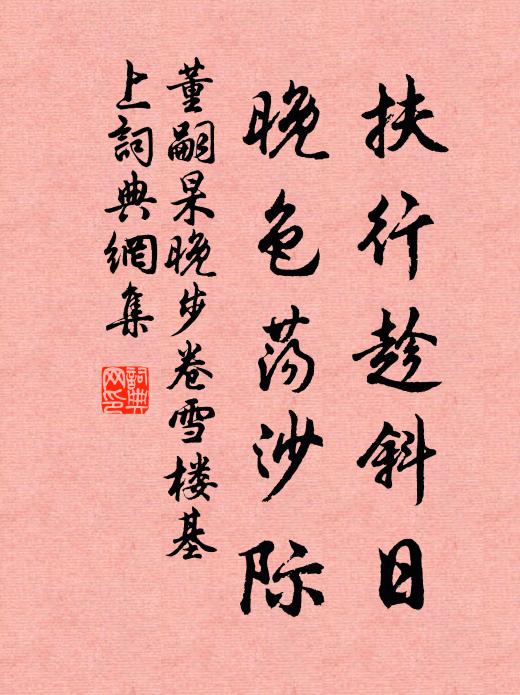 扶行趁斜日
晚色荡沙际
董嗣杲晚步卷雪楼基
上詞典網集
詞典网印